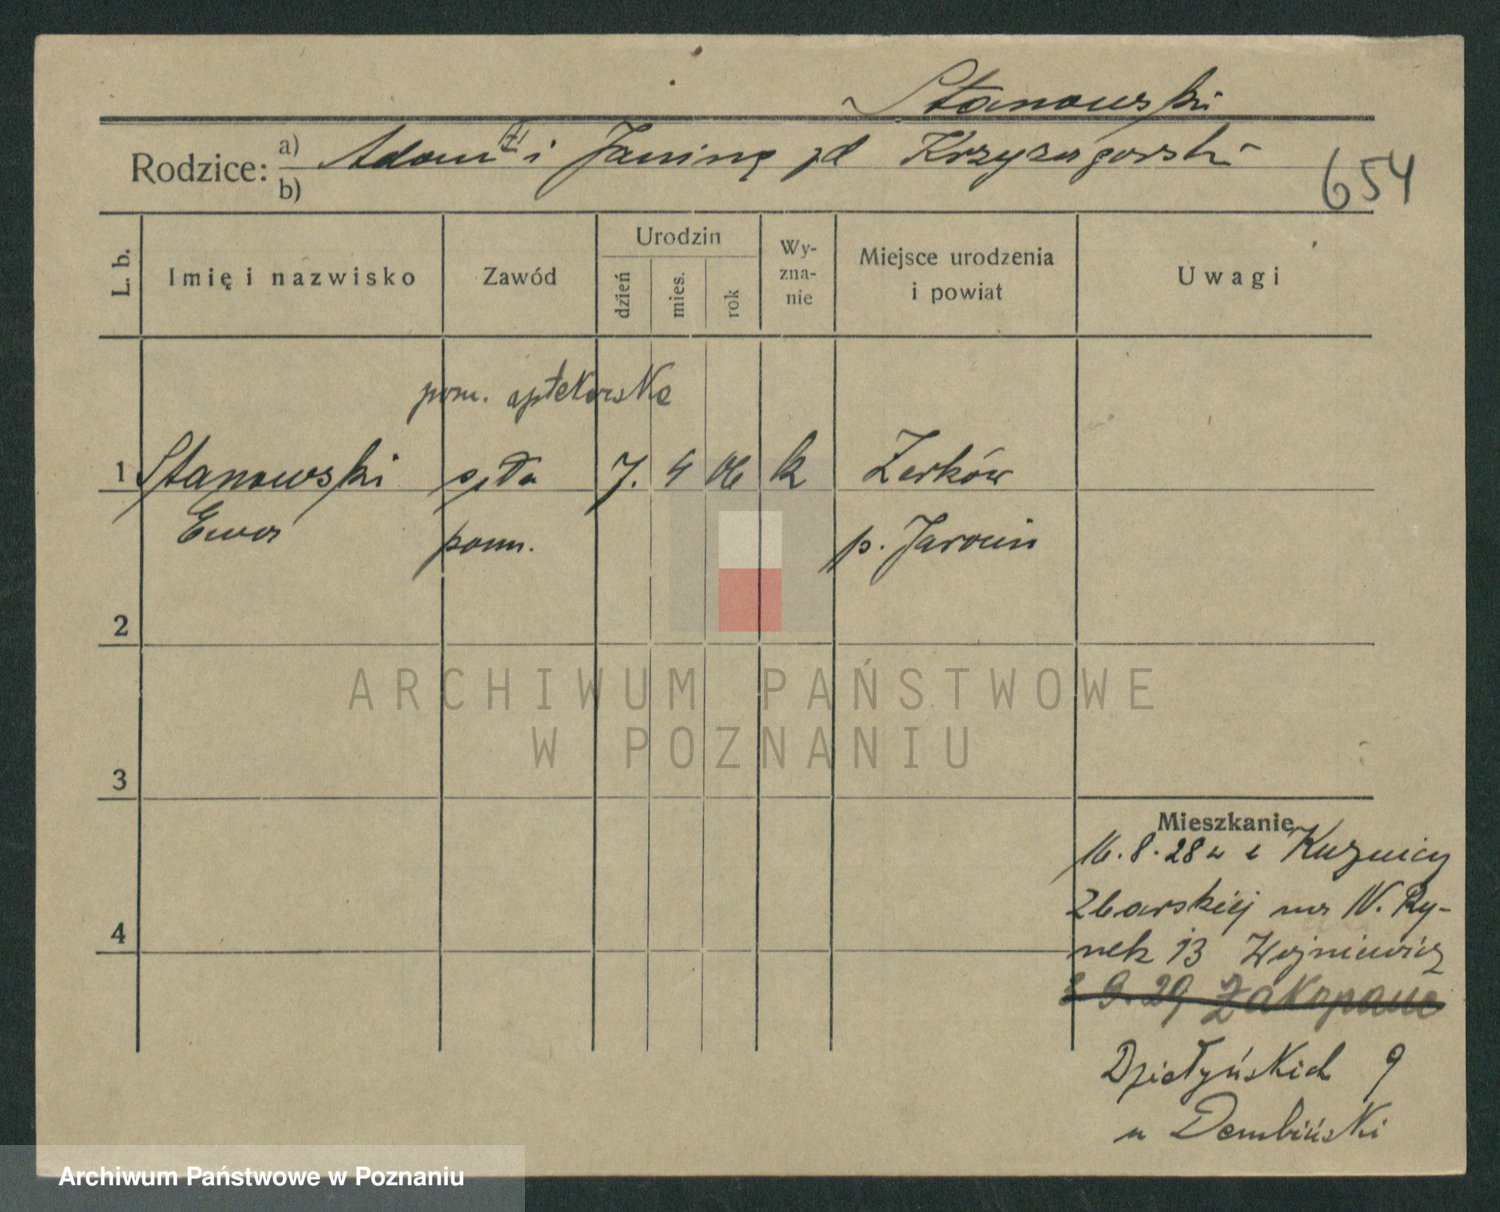 Stanowski
Rodzice: a) Adam i Janina zd Krzyżagórski
b)
654
L. b.
Imię i nazwisko
Zawód
Urodzin
dzień
mies.
rok
Wy-
zna-
nie
Miejsce urodzenia
i powiat
Uwagi
pom. aptekarska
1 Stanowski 7. 4 06 k Żerków
Ewa pom. p. Jarocin
2
3
4
ARCHIWUM PAŃSTWOWE
W POZNANIU
Mieszkanie
16.8.28 z Kuźnicy
Zbarskiej na N. Ry-
nek 13 Wojniewicz
2.9.29 Zakopane
Działyńskich 9
u Dembiński
Archiwum Państwowe w Poznaniu